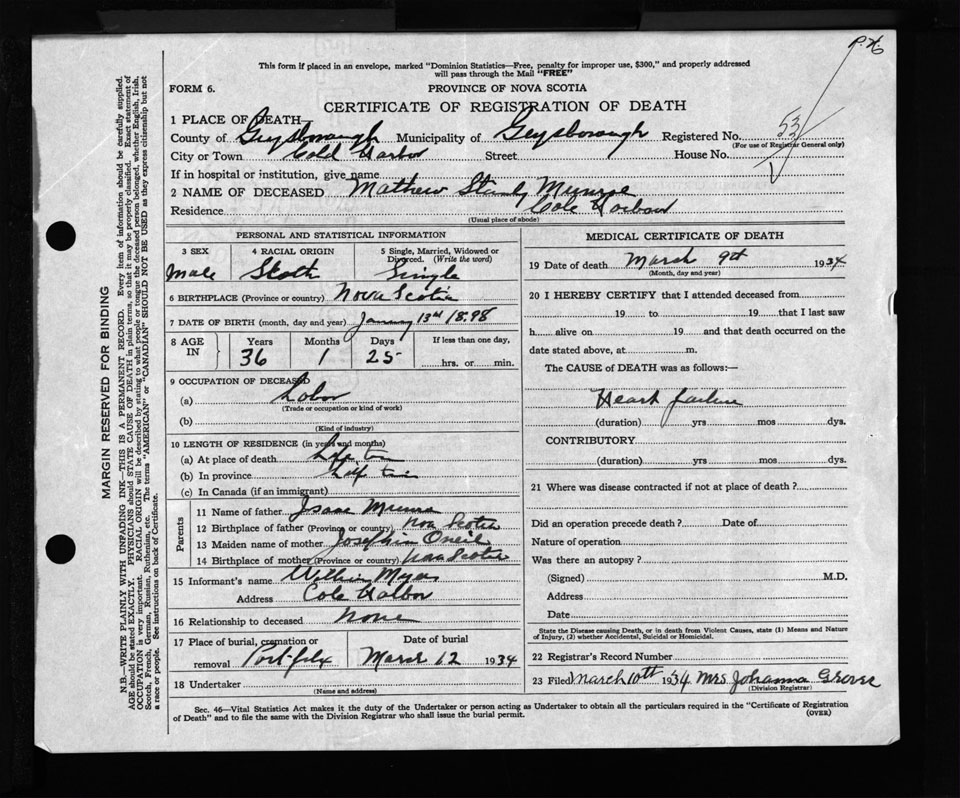 P.X.
This form if placed in an envelope, marked "Dominion Statistics—Free, penalty for improper use, $300," and properly addressed
will pass through the Mail "FREE"
FORM 6.
PROVINCE OF NOVA SCOTIA
CERTIFICATE OF REGISTRATION OF DEATH
1 PLACE OF DEATH—
County of Guysborough Municipality of Guysborough Registered No. 53
(For use of Registrar General only)
City or Town Cold Harbor Street House No.
If in hospital or institution, give name
2 NAME OF DECEASED Mathew Stanly Munroe
Residence Cole Harbour
(Usual place of abode)
PERSONAL AND STATISTICAL INFORMATION
3 SEX 4 RACIAL ORIGIN 5 Single, Married, Widowed or
Divorced. (Write the word)
Male Scoth Single
6 BIRTHPLACE (Province or country) Nova Scotia
7 DATE OF BIRTH (month, day and year) January 13th 1898
8 AGE IN Years Months Days If less than one day,
36 1 25 hrs. or min.
9 OCCUPATION OF DECEASED
(a) Labor
(Trade or occupation or kind of work)
(b)
(Kind of industry)
10 LENGTH OF RESIDENCE (in years and months)
(a) At place of death Life
(b) In province
(c) In Canada (if an immigrant)
Parents
11 Name of father Isaac Munro
12 Birthplace of father (Province or country) Nova Scotia
13 Maiden name of mother Josephin Oneil
14 Birthplace of mother (Province or country) Nova Scotia
15 Informant's name
Address Cole Halbor
16 Relationship to deceased None
17 Place of burial, cremation or Date of burial
removal Port felix March 12 1934
18 Undertaker
(Name and address)
MEDICAL CERTIFICATE OF DEATH
19 Date of death March 9th 1934
(Month, day and year)
20 I HEREBY CERTIFY that I attended deceased from
19 to 19 that I last saw
h alive on 19 and that death occurred on the
date stated above, at m.
The CAUSE of DEATH was as follows:—
Heart failure
(duration) yrs mos dys.
CONTRIBUTORY
(duration) yrs mos dys.
21 Where was disease contracted if not at place of death?
Did an operation precede death? Date of
Nature of operation
Was there an autopsy?
(Signed) M.D.
Address
Date
State the Disease causing Death, or in death from Violent Causes, state (1) Means and Nature
of Injury, (2) whether Accidental, Suicidal or Homicidal.
22 Registrar's Record Number
23 Filed March 10th 1934 Mrs Johanna
(Division Registrar)
Sec. 46—Vital Statistics Act makes it the duty of the Undertaker or person acting as Undertaker to obtain all the particulars required in the "Certificate of Registration
of Death" and to file the same with the Division Registrar who shall issue the burial permit.
(OVER)
MARGIN RESERVED FOR BINDING
N.B.—WRITE PLAINLY WITH UNFADING INK—THIS IS A PERMANENT RECORD. Every item of information should be carefully supplied.
AGE should be stated EXACTLY. PHYSICIANS should STATE CAUSE OF DEATH in plain terms, so that it may be properly classified. Exact statement of
OCCUPATION is very important. RACIAL ORIGIN will be described by stating to what people or tongue the deceased person belonged, whether English, Irish,
Scotch, French, German, Russian, Ruthenian, etc. The terms "AMERICAN" or "CANADIAN" SHOULD NOT BE USED as they express citizenship but not
a race or people. See instructions on back of Certificate.